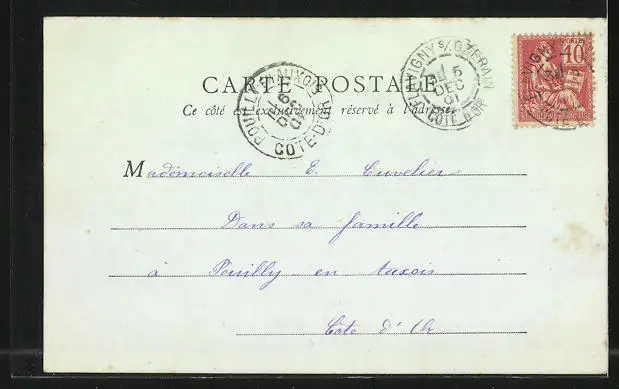 CARTE POSTALE
Ce côté est exclusivement réservé à l'adresse.
POUILLY-EN-AUXOIS
CÔTE-D'OR
FLAVIGNY S/ OZERAIN
5
DEC
01
CÔTE D'OR
POSTES
10
Mademoiselle E. Cuvelier
Dans sa famille
à Pouilly en Auxois
Côte d'Or